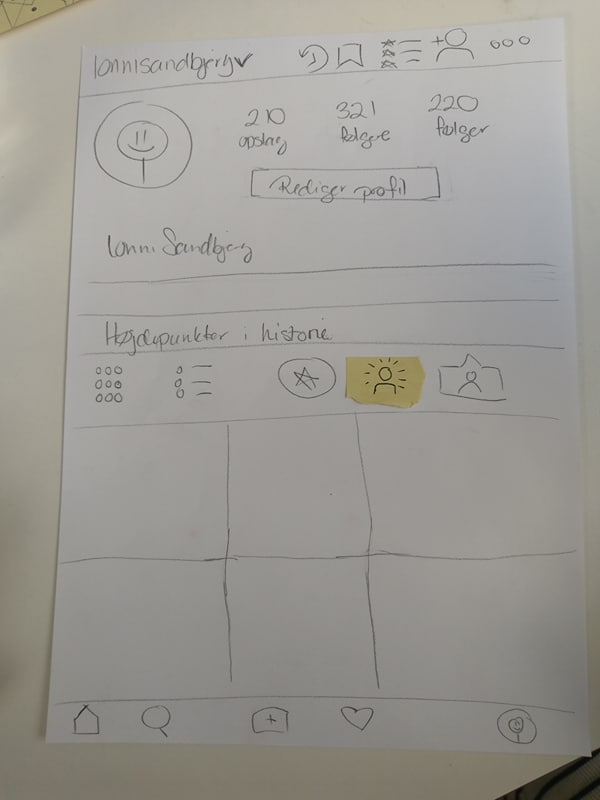 lonnisandbjerg
210 321 220
opslag følgere følger
Rediger profil
Lonni Sandbjerg
Højdepunkter i historie